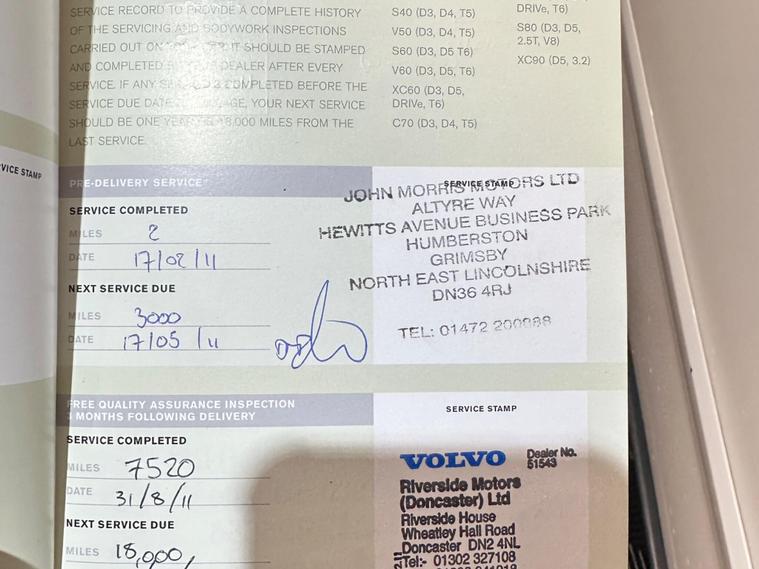 SERVICE RECORD TO PROVIDE A COMPLETE HISTORY
OF THE SERVICING AND BODYWORK INSPECTIONS
CARRIED OUT ON IT SHOULD BE STAMPED
AND COMPLETED DEALER AFTER EVERY
SERVICE. IF ANY COMPLETED BEFORE THE
SERVICE DUE YOUR NEXT SERVICE
SHOULD BE ONE 18,000 MILES FROM THE
LAST SERVICE.
S40 (D3, D4, T5)
V50 (D3, D4, T5)
S60 (D3, D5 T6)
V60 (D3, D5, T6)
XC60 (D3, D5,
DRIVe, T6)
C70 (D3, D4, T5)
DRIVe, T6)
S80 (D3, D5,
2.5T, V8)
XC90 (D5, 3.2)
VICE STAMP
PRE-DELIVERY SERVICE
SERVICE STAMP
SERVICE COMPLETED
MILES 2
DATE 17/02/11
NEXT SERVICE DUE
MILES 3000
DATE 17/05/11
JOHN MORRIS MOTORS LTD
ALTYRE WAY
HEWITTS AVENUE BUSINESS PARK
HUMBERSTON
GRIMSBY
NORTH EAST LINCOLNSHIRE
DN36 4RJ
TEL: 01472
FREE QUALITY ASSURANCE INSPECTION
3 MONTHS FOLLOWING DELIVERY
SERVICE STAMP
SERVICE COMPLETED
MILES 7520
DATE 31/8/11
NEXT SERVICE DUE
MILES 18,000
VOLVO
Dealer No.
51543
Riverside Motors
(Doncaster) Ltd
Riverside House
Wheatley Hall Road
Doncaster DN2 4NL
Tel:- 01302 327108